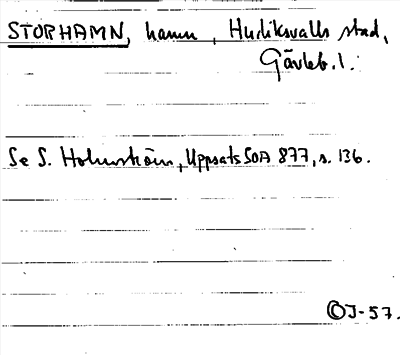 STORHAMN, hamn, Hudiksvalls stad,
Gävleb. l.
Se S. Holmström, Uppsats SOA 877, s. 136.
©J-57.